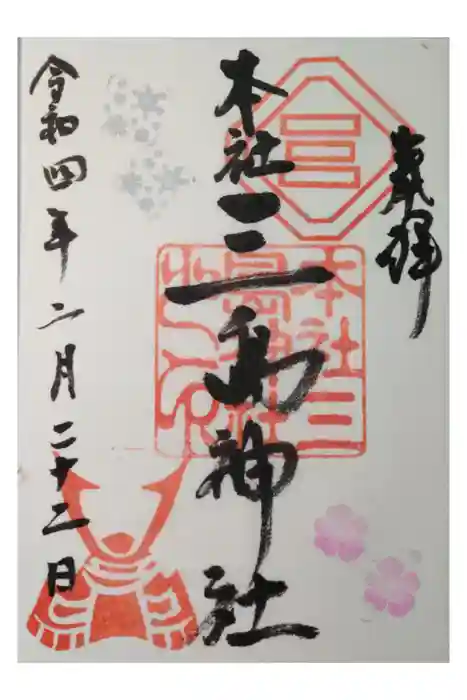 奉拝
本社三島神社
本社三島神社之印
令和四年二月二十二日